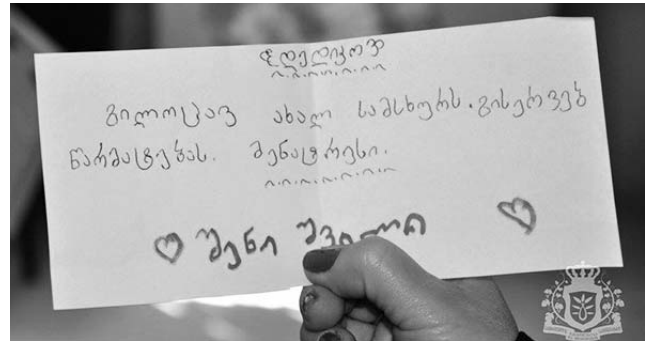 დედიკოვ
გილოცავ ახალ სამსხურს. გისურვებ
წარმატებას. მენატრები.
შენი შვილი